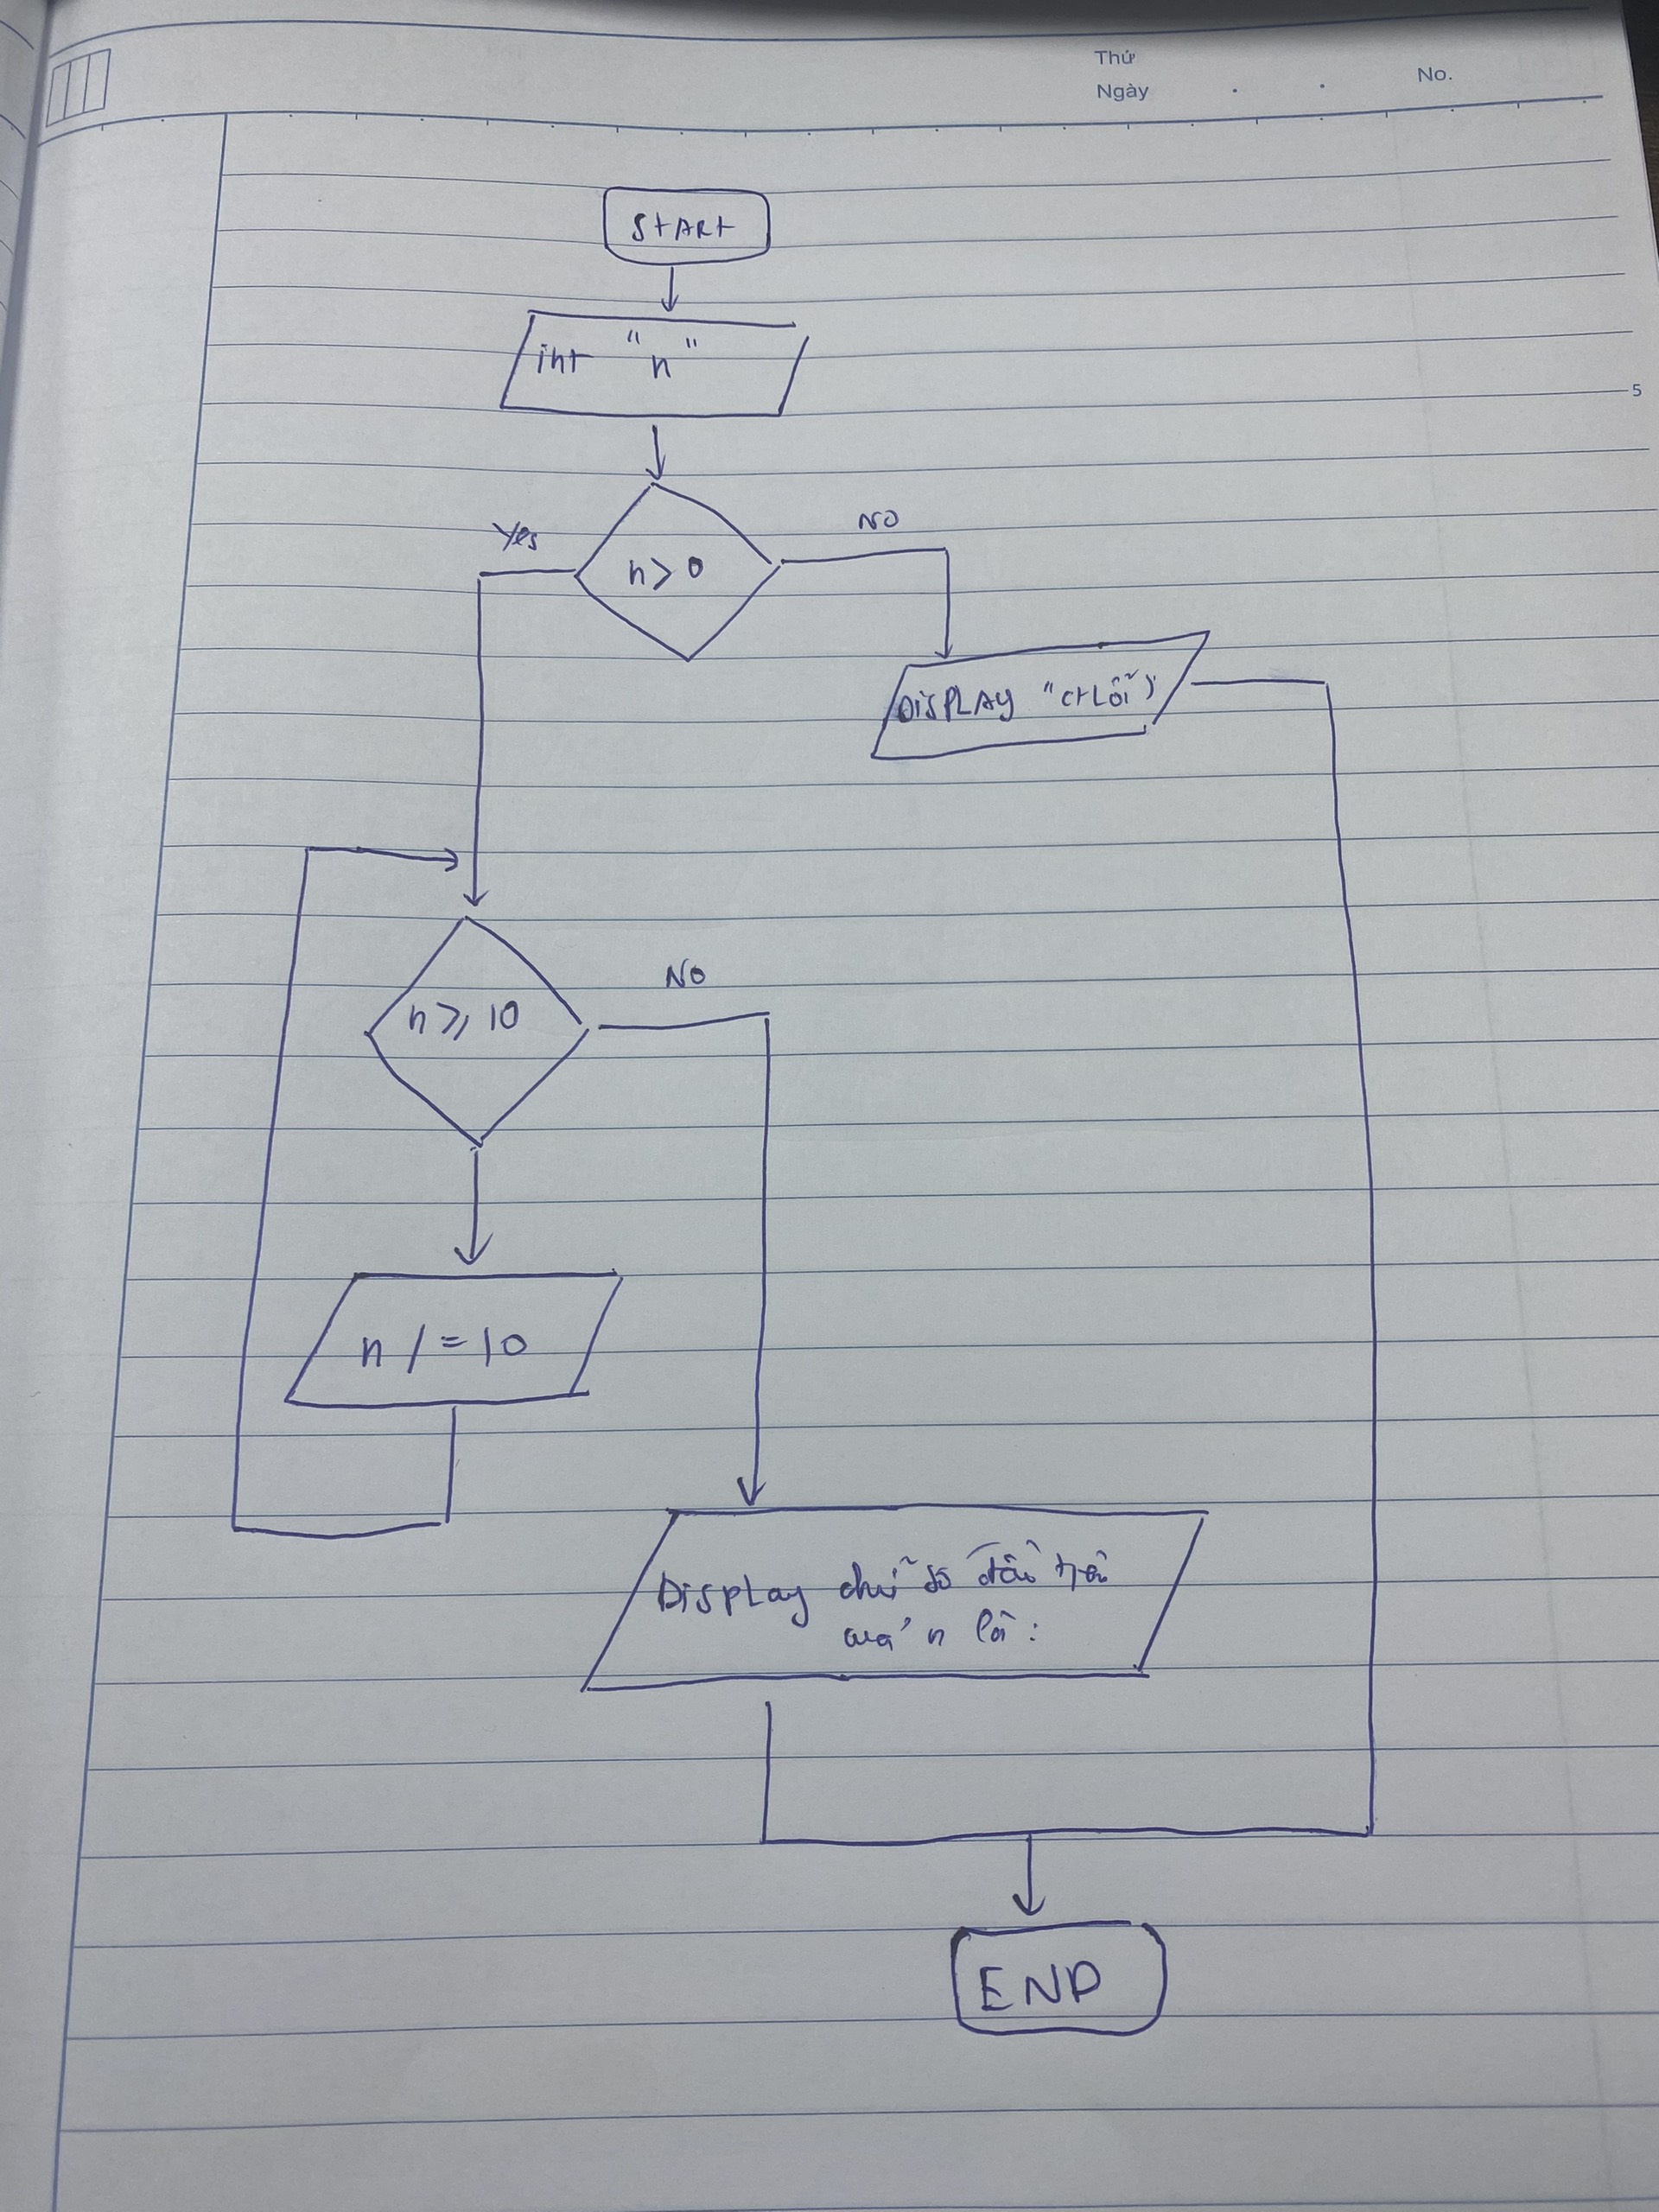 Thứ
Ngày
No.
START
int "n"
5
Yes
NO
n > 0
DISPLAY "ctLỗi"
NO
n ≥ 10
n /= 10
Display chữ số đầu tiên
của n là:
END